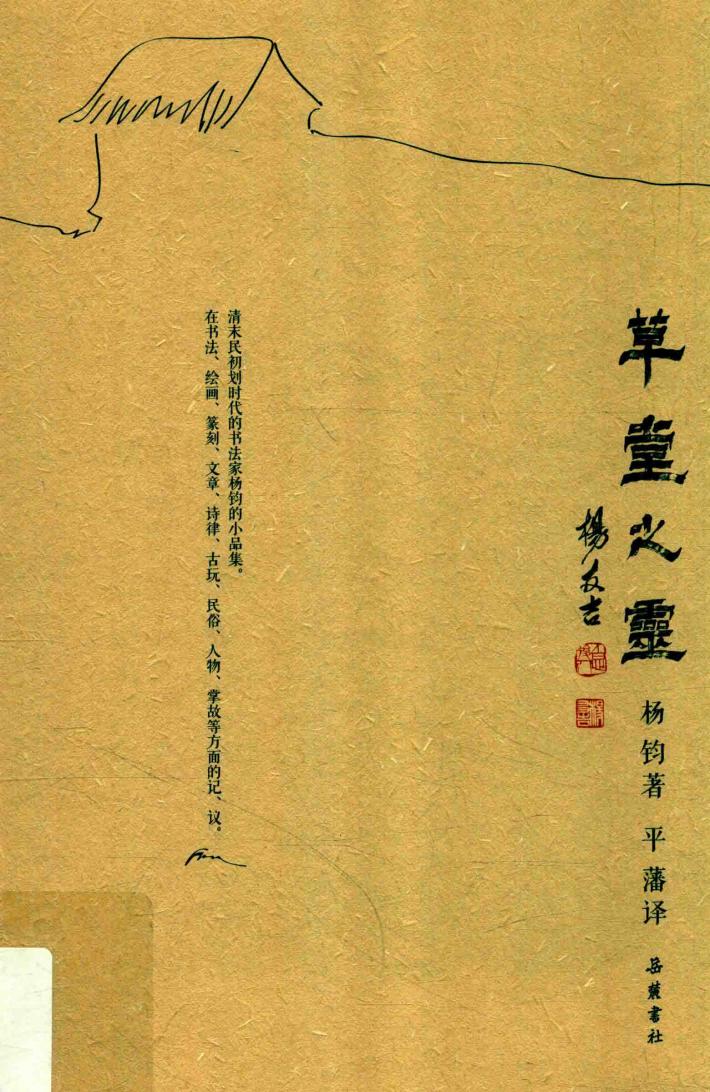 草堂之靈
楊友吉
杨钧著 平藩译
岳麓書社
清末民初划时代的书法家杨钧的小品集。
在书法、绘画、篆刻、文章、诗律、古玩、民俗、人物、掌故等方面的记、议。